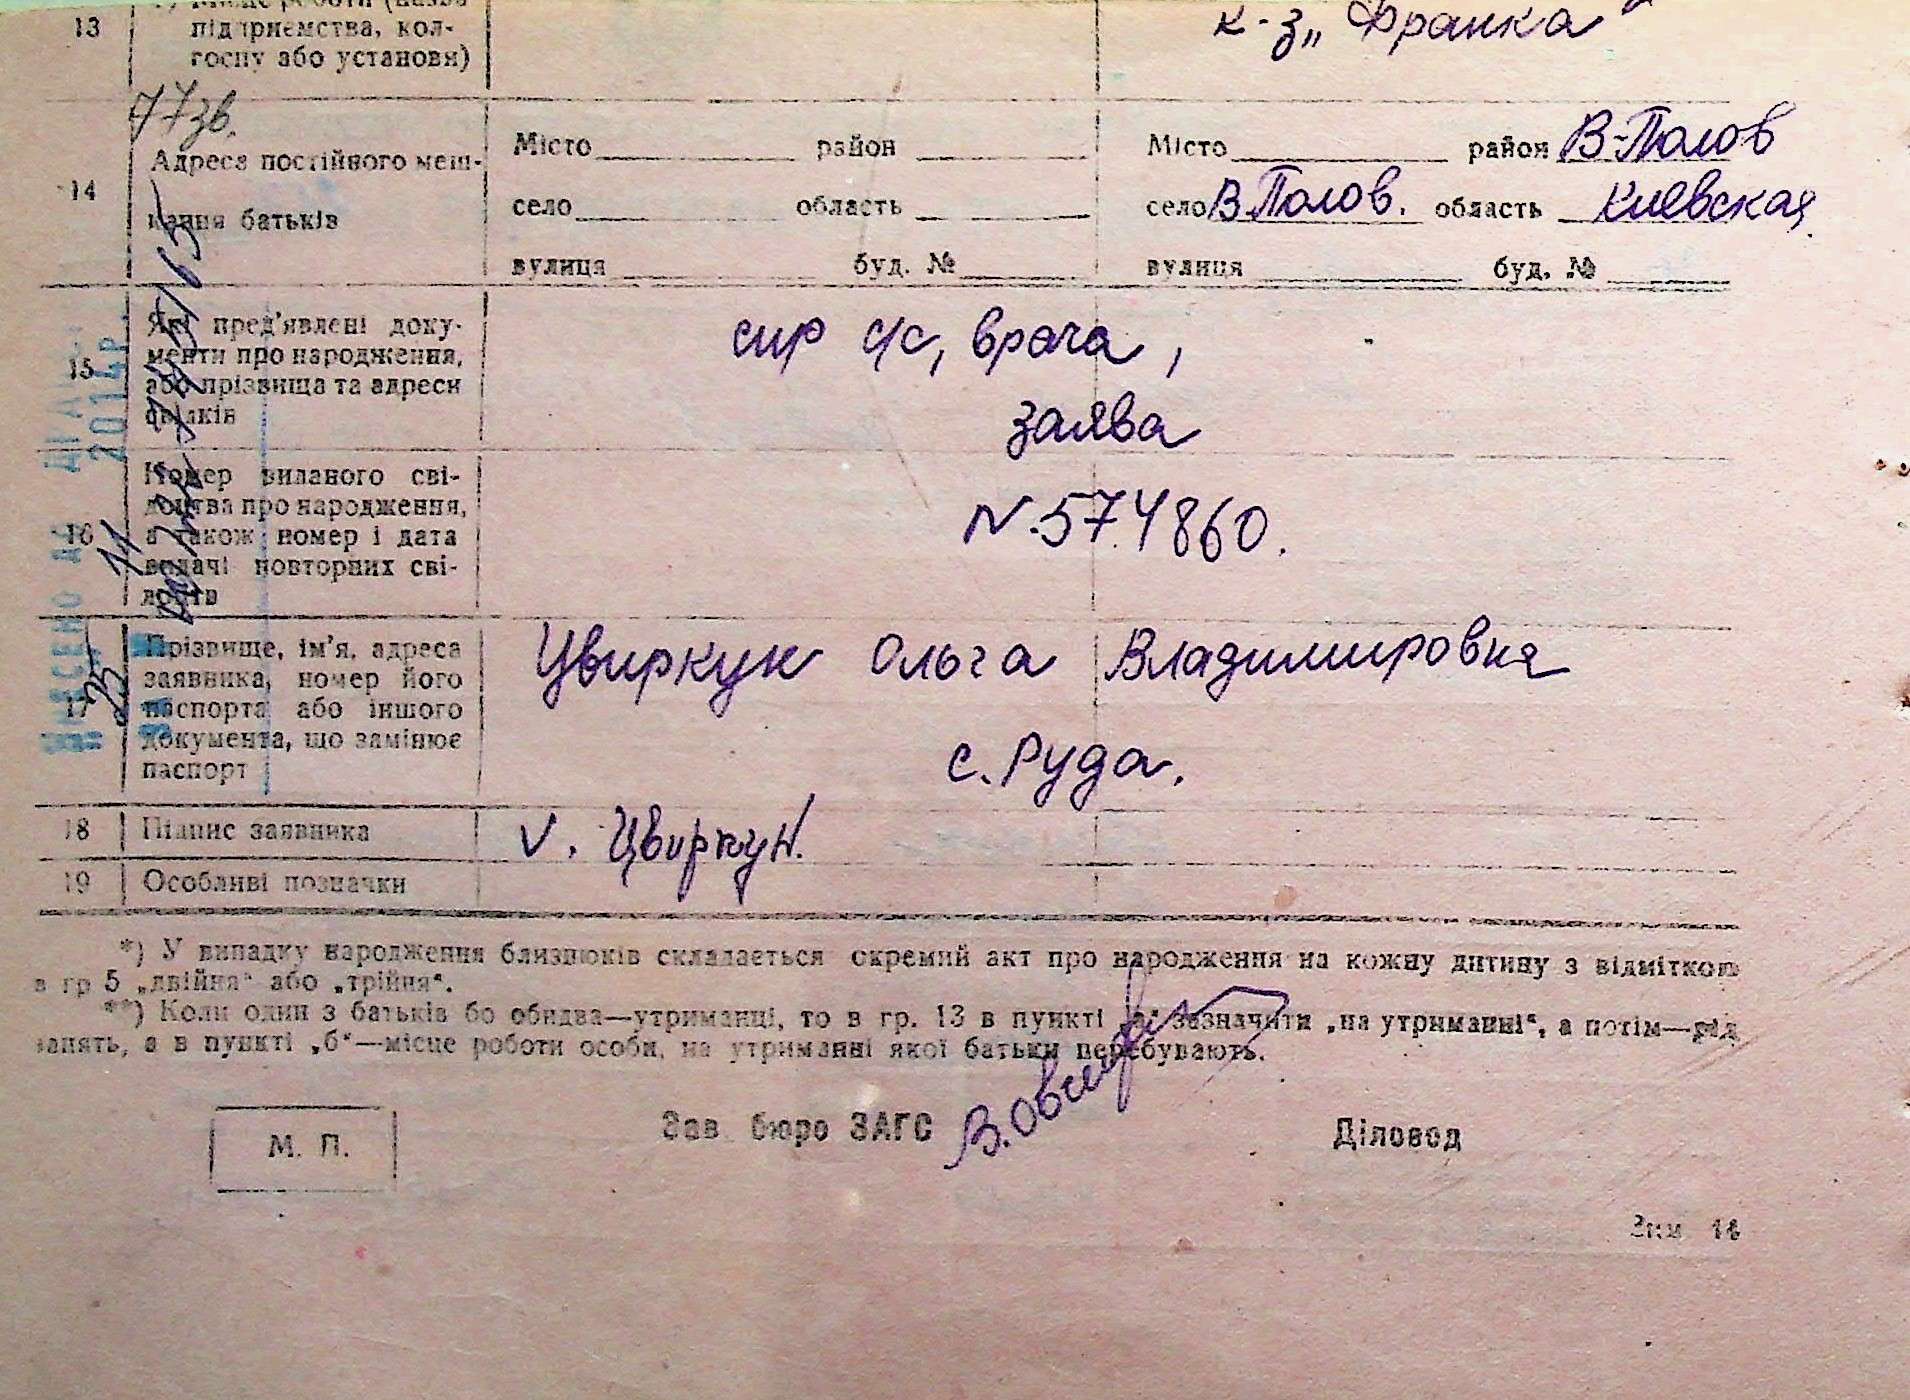 13 підприємства, кол-
госпу або установи)
к-з „Франка"
77 зв.
14 Адреса постійного меш-
кання батьків
Місто район
село область
вулиця буд. №
Місто район В-Полов
село В-Полов. область Киевская
вулиця буд. №
15 Які пред'явлені доку-
менти про народження,
або прізвища та адреси
свідків
с/с, врача,
заява
16 Номер виданого сві-
доцтва про народження,
а також номер і дата
видачі повторних сві-
доцтв
N. 574860.
17 Прізвище, ім'я, адреса
заявника, номер його
паспорта або іншого
документа, що замінює
паспорт
Цвиркун Ольга Владимировна
с. Руда.
18 Підпис заявника
V. Цвиркун.
19 Особливі позначки
*) У випадку народження близнюків складається окремий акт про народження на кожну дитину з відміткою
в гр 5 „двійня“ або „трійня“.
**) Коли один з батьків бо обидва—утриманці, то в гр. 13 в пункті „а“ зазначити „на утриманні“, а потім—рід
занять, а в пункті „б“—місце роботи особи, на утриманні якої батьки перебувають.
М. П.
Зав. бюро ЗАГС
Діловод
2014р.